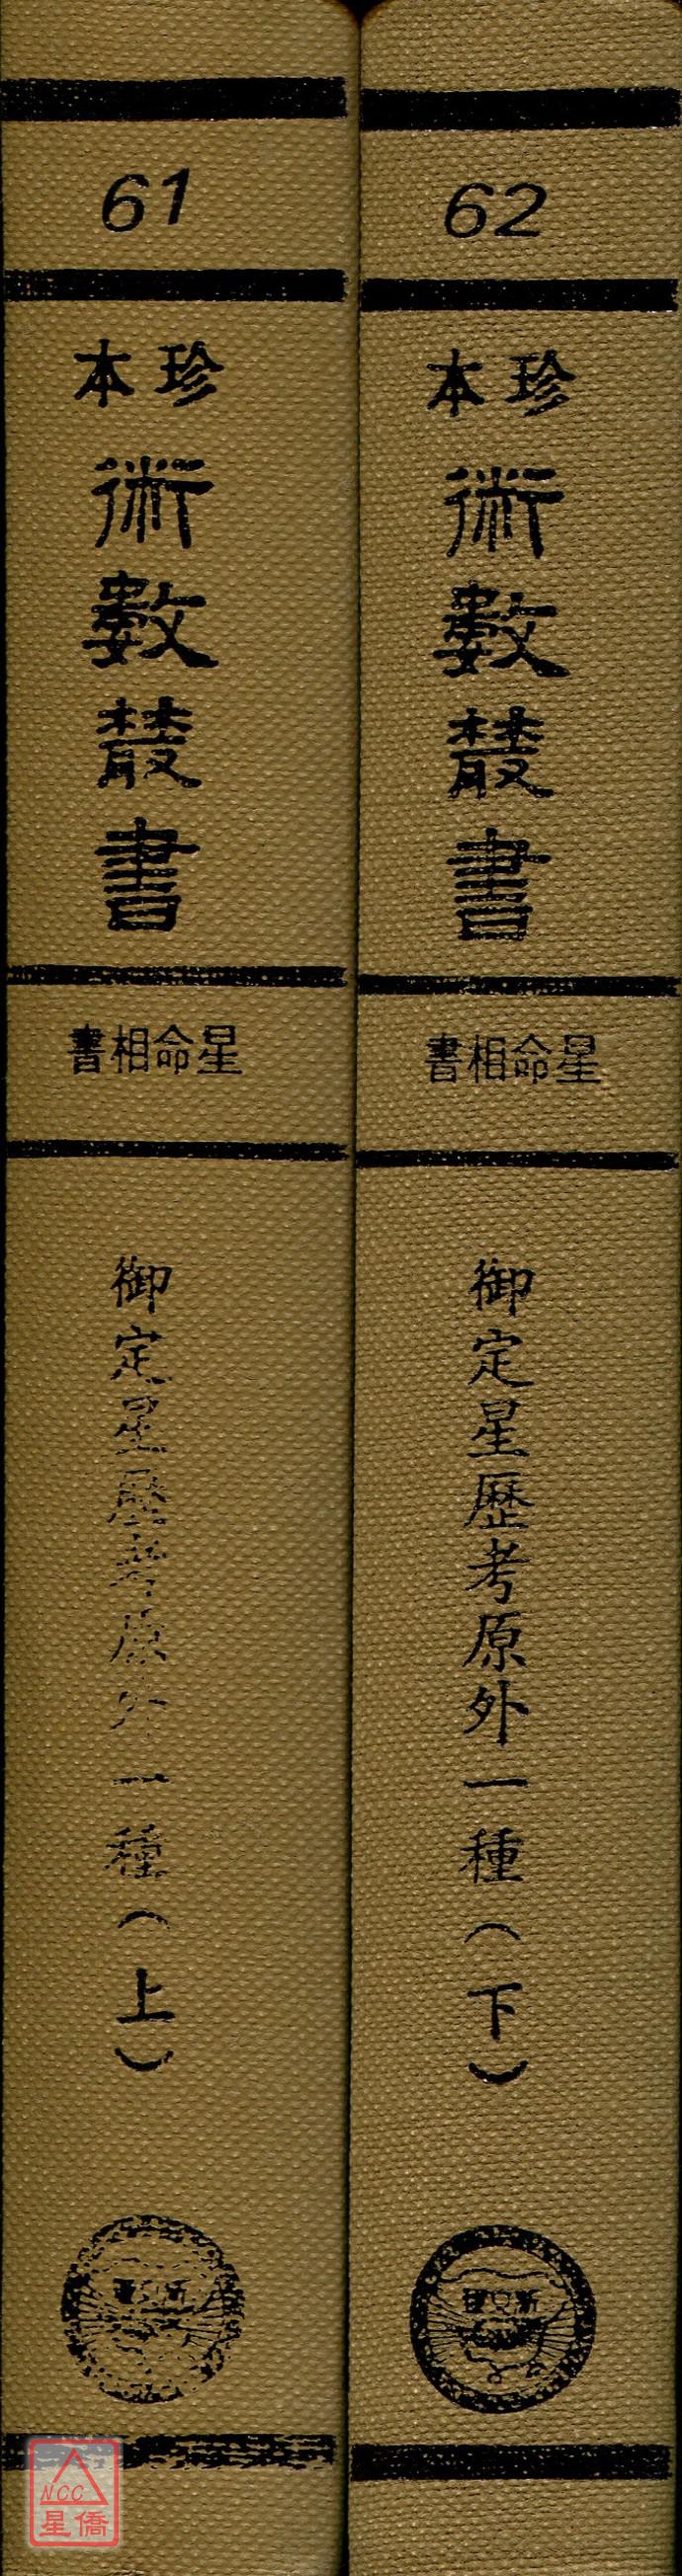 61
珍本
術數叢書
星命相書
御定星歷考原外一種（上）
62
珍本
術數叢書
星命相書
御定星歷考原外一種（下）
NCC
星僑